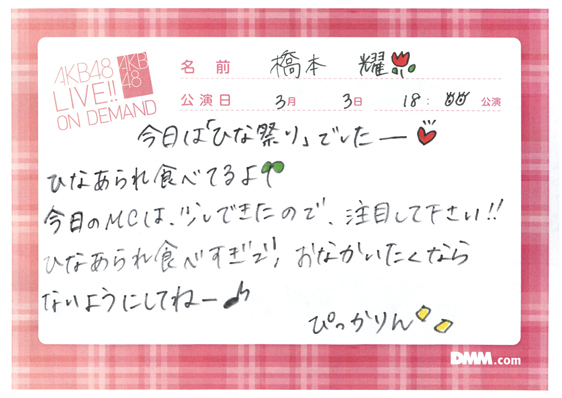 AKB48
LIVE!!
ON DEMAND
AKB
48
名前 橋本 耀
公演日 3月 3日 18:00 公演
今日は「ひな祭り」でしたー
ひなあられ食べてるよ
今日のMCは、少しできたので、注目して下さい!!
ひなあられ食べすぎで、おなかいたくなら
ないようにしてねー♪
ぴっかりん
DMM.com